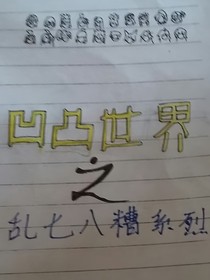 凹凸世界
之
乱七八糟系烈